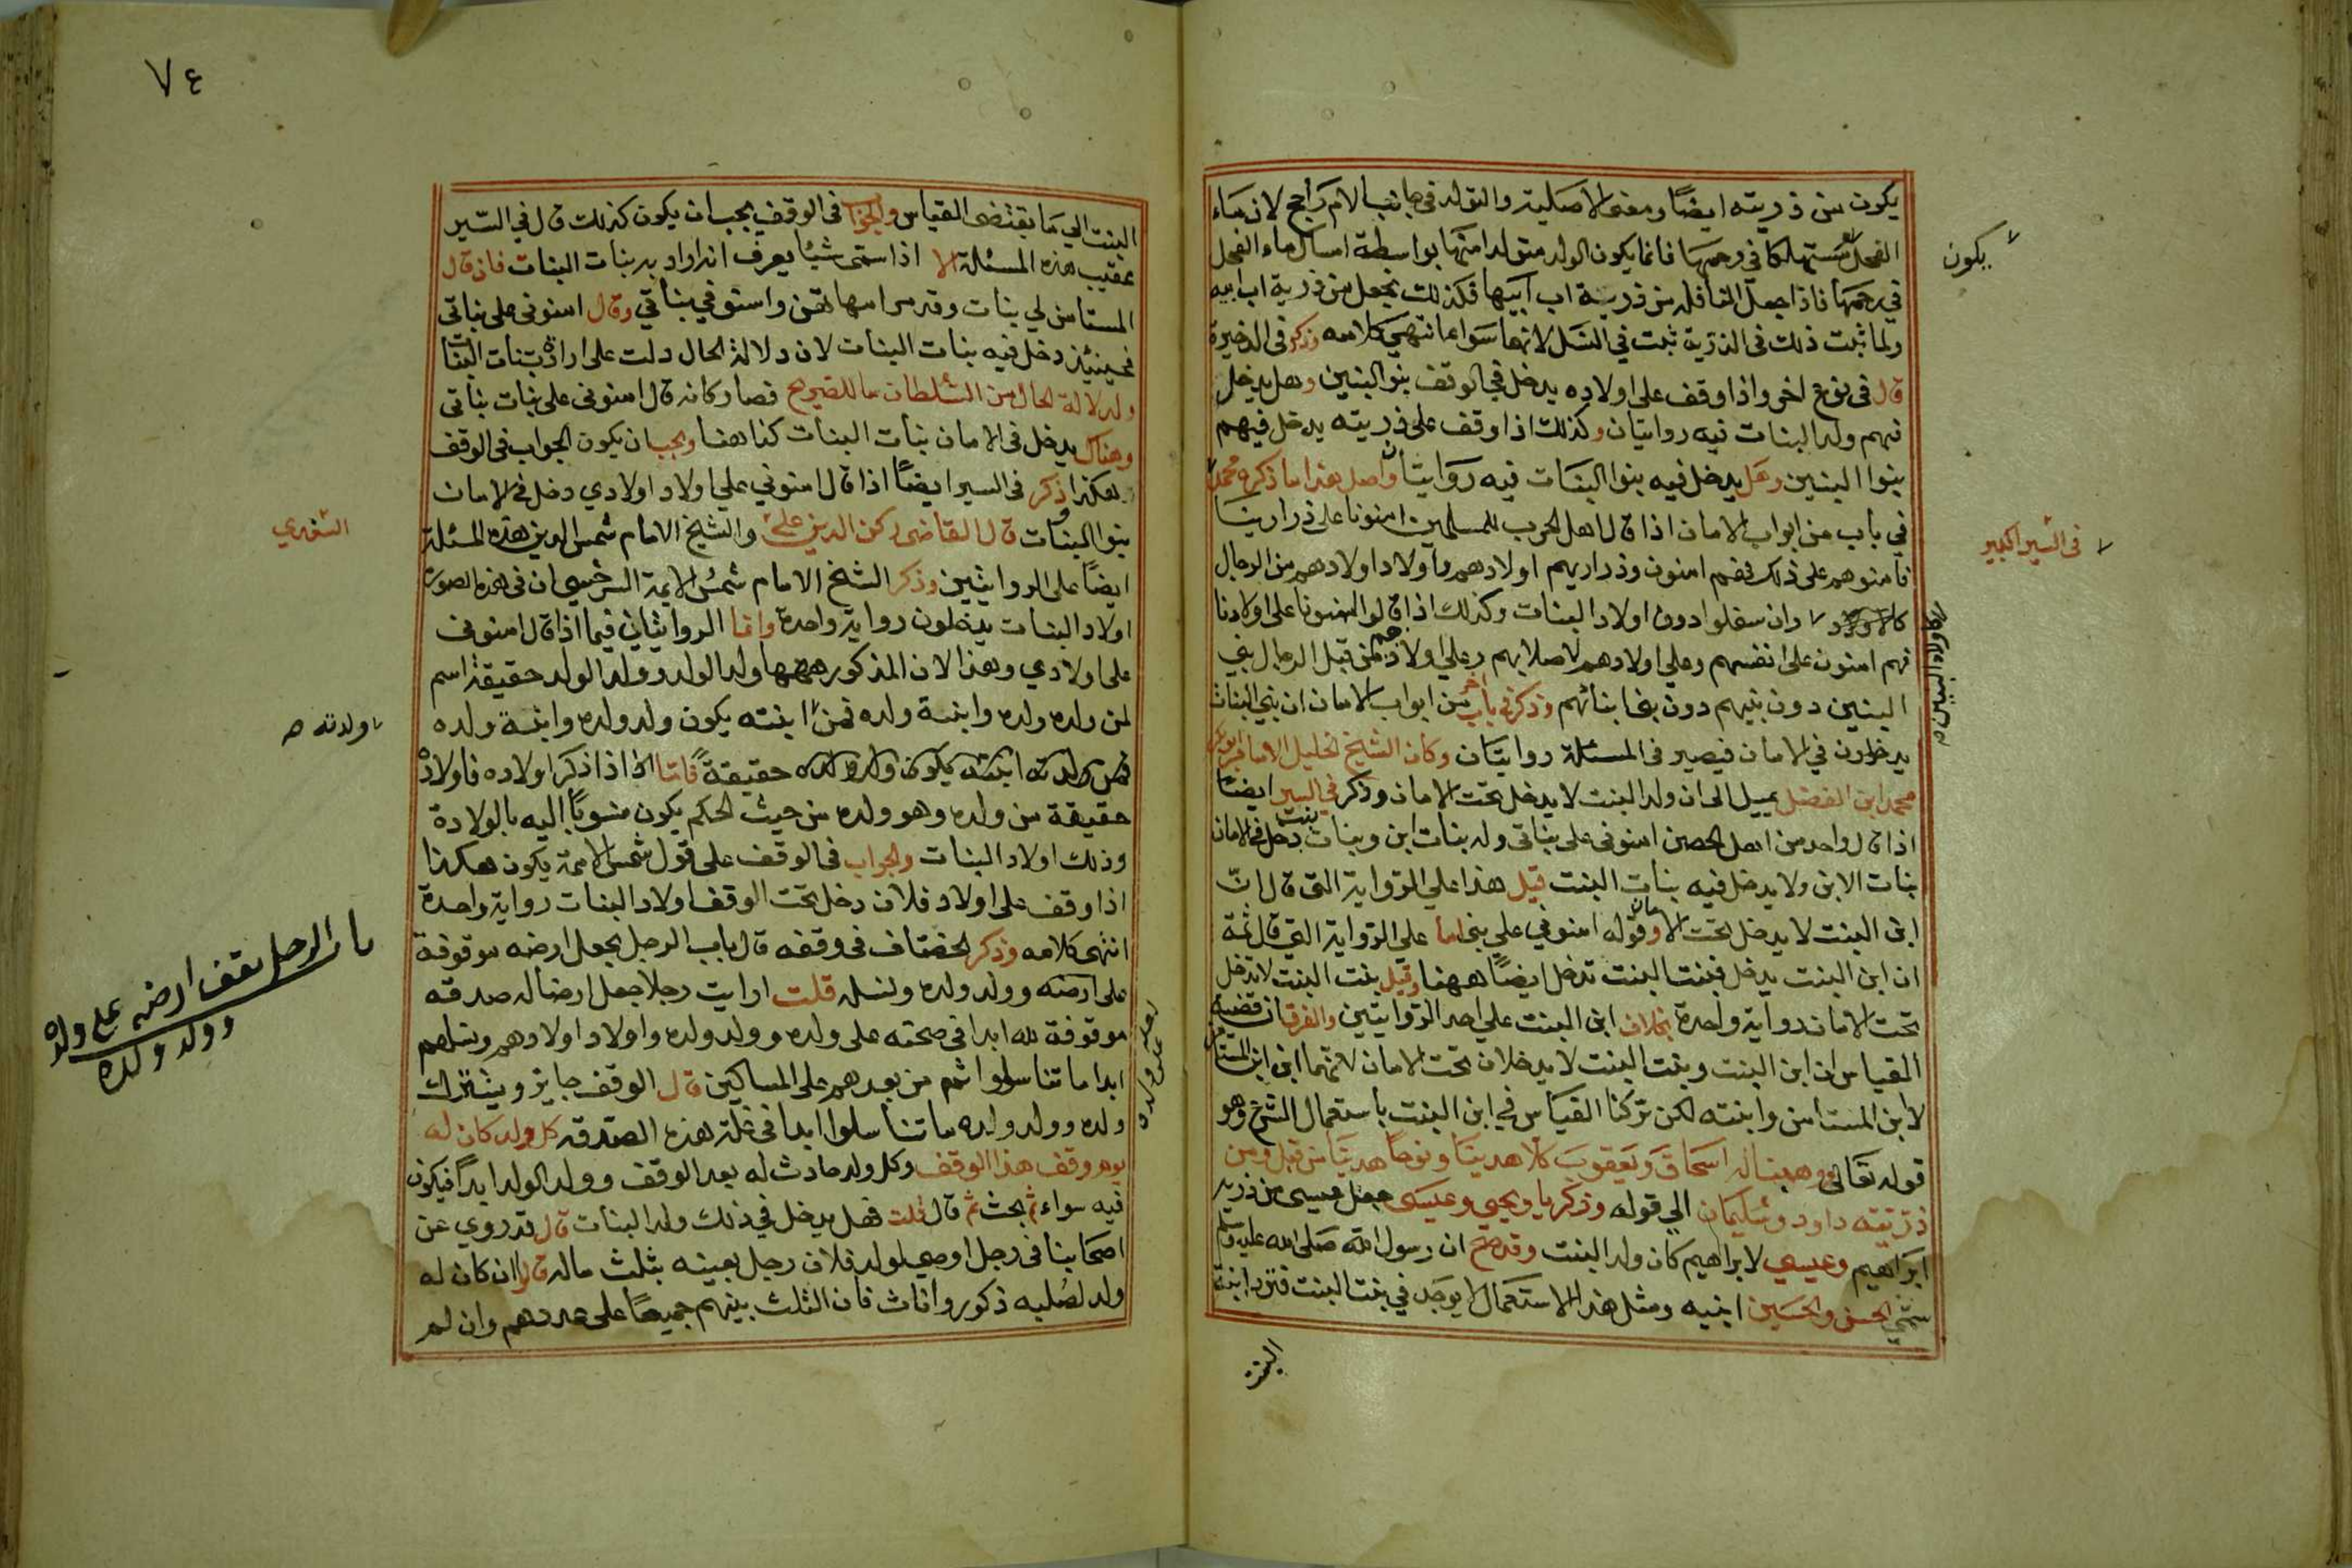 يكون من ذريته ايضا ومعنى الاصلية والتولد في جانب الام راجح لان ماء
الفحل مستهلكا في رحمها فانما يكون الولد متولدا منها بواسطة امساك ماء الفحل
يكون
في رحمها فاذا جعل النافلة من ذرية اب ابيها فكذلك نجعل من ذرية اب ابيه
ولما ثبت ذلك في الذرية ثبت في النسل لانهما سواء انتهى كلامه وذكر في الذخيرة
قال في نوع اخر واذا وقف على اولاده يدخل في الوقف بنو البنين وهل يدخل
فيهم ولد البنات فيه روايتان وكذلك اذا وقف على ذريته يدخل فيهم
بنوا البنين وهل يدخل فيه بنوا البنات فيه روايتان واصل هذا ما ذكره محمد
في السير الكبير
في باب من ابواب الامان اذا قال اهل الحرب للمسلمين امنونا على ذرارينا
فامنوهم على ذلك فهم امنون وذراريهم اولادهم واولاد اولادهم من الرجال
وان سفلوا دون اولاد البنات وكذلك اذا قالوا امنونا على اولادنا
اولاد البنين
فهم امنون على انفسهم وعلى اولادهم لاصلابهم وعلى اولادهم من قبل الرجال بني
البنين دون بنيهم دون بني ابنائهم وذكر في باب اخر من ابواب الامان ان بني البنات
يدخلون في الامان فيصير في المسئلة روايتان وكان الشيخ الجليل الامام ابو بكر
محمد ابن الفضل يميل الى ان ولد البنت لا يدخل تحت الامان وذكر في السير ايضا
اذا قال واحد من اهل الحصن امنوني على بناتي وله بنات ابن وبنات بنت دخل في الامان
بنات الابن ولا يدخل فيه بنات البنت قيل هذا على الرواية التي قال ان
ابن البنت لا يدخل تحت الامان وقوله امنوني على بني اما على الرواية التي قال ثمة
ان ابن البنت يدخل فبنت البنت تدخل ايضا ههنا وقيل بنت البنت لا تدخل
تحت الامان رواية واحدة بخلاف ابن البنت على احد الروايتين والفرق ان قضية
القياس ان ابن البنت وبنت البنت لا يدخلان تحت الامان لانهما ابن ابن المستامن
لابن المستامن وابنته لكن تركنا القياس في ابن البنت باستعمال الشرع وهو
قوله تعالى ووهبنا له اسحاق ويعقوب كلا هدينا ونوحا هدينا من قبل ومن
ذريته داود وسليمان الى قوله وذكريا ويحيى وعيسى جعل عيسى من ذرية
ابراهيم وعيسى لابراهيم كان ولد البنت وقد صح ان رسول الله صلى الله عليه وسلم
سمى الحسن والحسين ابنيه ومثل هذا الاستعمال لا يوجد في بنت البنت فترد ابنة
البنت
٧٤
البنت الى ما يقتضي القياس والجواب في الوقف يجب ان يكون كذلك قال في السير
عقيب هذه المسئلة الا اذا سمى شيئا يعرف انه اراد به بنات البنات فان قال
المستامن لي بنات وقد مر امهاتهن واستو في بناتي وقال امنوني على بناتي
فحينئذ دخل فيه بنات البنات لان دلالة الحال دلت على ارادة بنات البنات
ولدلالة الحال من السلطان ما للصريح فصار كانه قال امنوني على بنات بناتي
وهناك يدخل في الامان بنات البنات كذا ههنا ويجب ان يكون الجواب في الوقف
هكذا ذكر في السير ايضا اذا قال امنوني على اولاد اولادي دخل في الامان
بنوا البنات قال القاضي ركن الدين علي والشيخ الامام شمس الدين هذه المسئلة
السغدي
ايضا على الروايتين وذكر الشيخ الامام شمس الايمة السرخسي ان في هذه الصورة
اولاد البنات يدخلون رواية واحدة وانما الروايتان فيما اذا قال امنوني
على اولادي وهذا لان المذكور ههنا ولد الولد وولد الولد حقيقة اسم
لمن ولده ولده وابنة ولده فمن ابنته يكون ولد ولده وابنة ولده
ولدته صح
حقيقة فاما اذا ذكر اولاده فاولاده
حقيقة من ولده وهو ولده من حيث الحكم يكون منسوبا اليه بالولادة
وذلك اولاد البنات والجواب في الوقف على قول شمس الائمة يكون هكذا
اذا وقف على اولاد فلان دخل تحت الوقف اولاد البنات رواية واحدة
انتهى كلامه وذكر الخصاف في وقفه قال باب الرجل يجعل ارضه موقوفة
باب الرجل يقف ارضه على ولده
وولد ولده
على ارضه وولد ولده ونسله قلت ارايت رجلا جعل ارضا له صدقه
موقوفة لله ابدا في صحته على ولده وولد ولده واولاد اولادهم ونسلهم
ابدا ما تناسلوا ثم من بعدهم على المساكين قال الوقف جايز ويشترك
ولده وولد ولده ما تناسلوا ابدا في غلة هذه الصدقه كل ولد كان له
يوم وقف هذا الوقف وكل ولد حادث له بعد الوقف وولد الولد ابدا فيكون
فيه سواء ثم بحث ثم قال قلت فهل يدخل في ذلك ولد البنات قال قد روي عن
اصحابنا في رجل اوصى لولد فلان رجل بعينه بثلث ماله قالوا ان كان له
ولد لصلبه ذكور واناث فان الثلث بينهم جميعا على عددهم وان لم